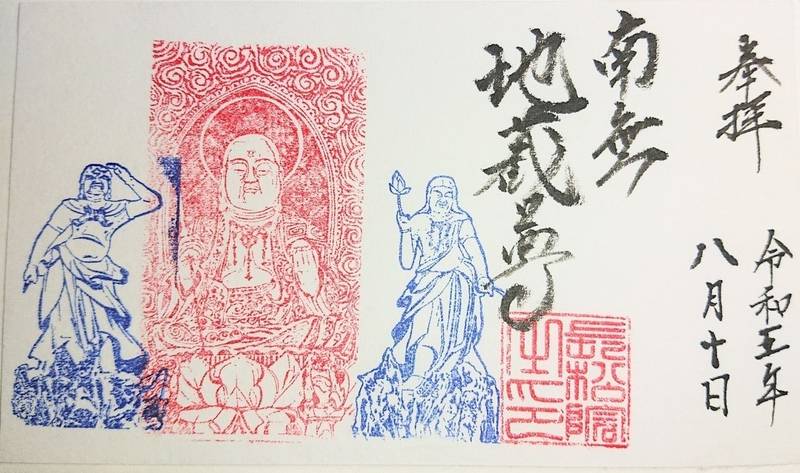 奉拝
令和五年
八月十日
南無
地蔵尊
長松院
之印